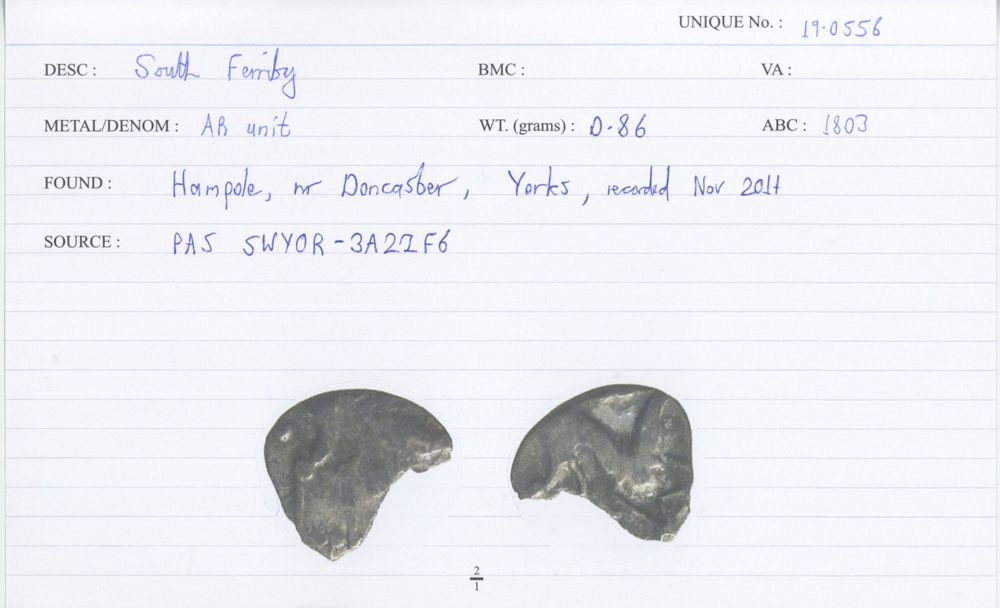 UNIQUE No. : 19-0556
DESC : South Ferriby BMC : VA :
METAL/DENOM : AR unit WT. (grams) : 0-86 ABC : 1803
FOUND : Hampole, nr Doncaster, Yorks, recorded Nov 2017
SOURCE : PAS SWYOR-3A21F6
2
1